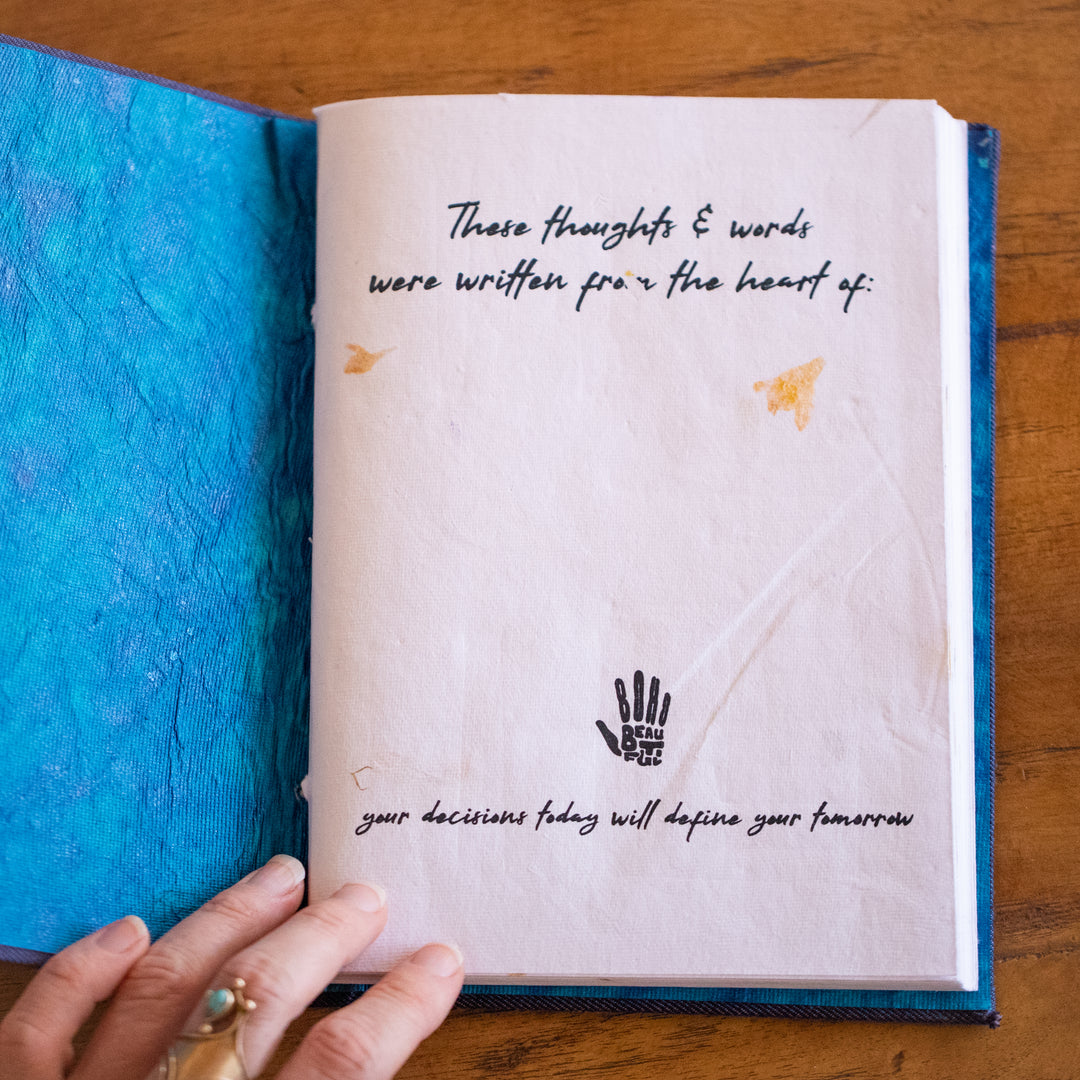 These thoughts & words
were written from the heart of:
BOHO
BEAU
TI
FUL
your decisions today will define your tomorrow